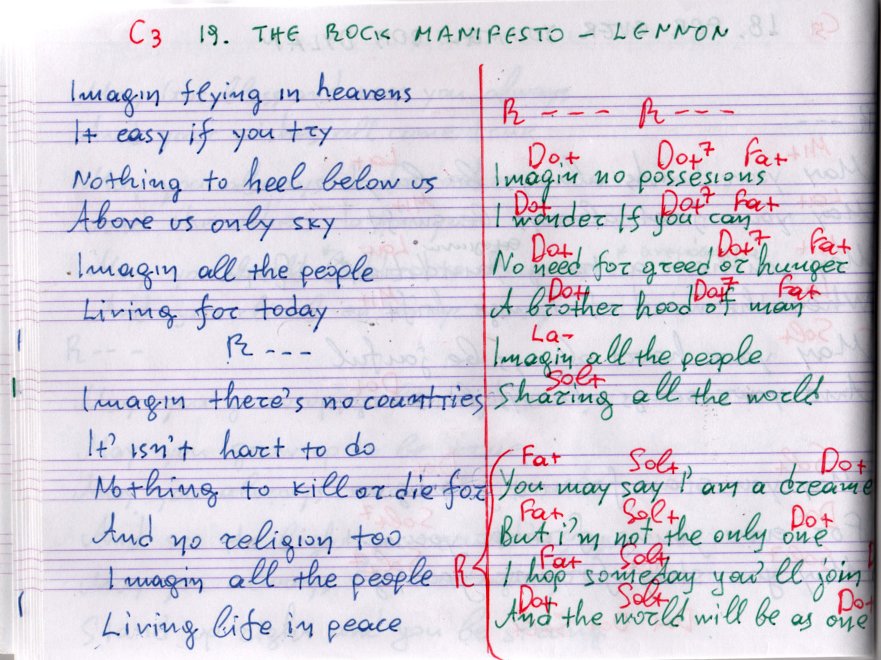 C3 19. THE ROCK MANIFESTO - LENNON
Imagin flying in heavens
It easy if you try
Nothing to heel below us
Above us only sky
Imagin all the people
Living for today
R ---
Imagin there's no countries
It' isn't hart to do
Nothing to kill or die for
And no religion too
Imagin all the people
Living life in peace
R - - - - R - - -
Do+ Do+7 Fa+
Imagin no possesions
Do+ Do+7 Fa+
I wonder If you can
Do+ Do+7 Fa+
No need for greed or hunger
Do+ Do+7 Fa+
A brother hood of man
La-
Imagin all the people
Sol+
Sharing all the world
Fa+ Sol+ Do+
You may say I' am a dreame
Fa+ Sol+ Do+
But i'm not the only one
Fa+ Sol+
R I hop someday you'll join
Do+ Sol+ Do+
And the world will be as one